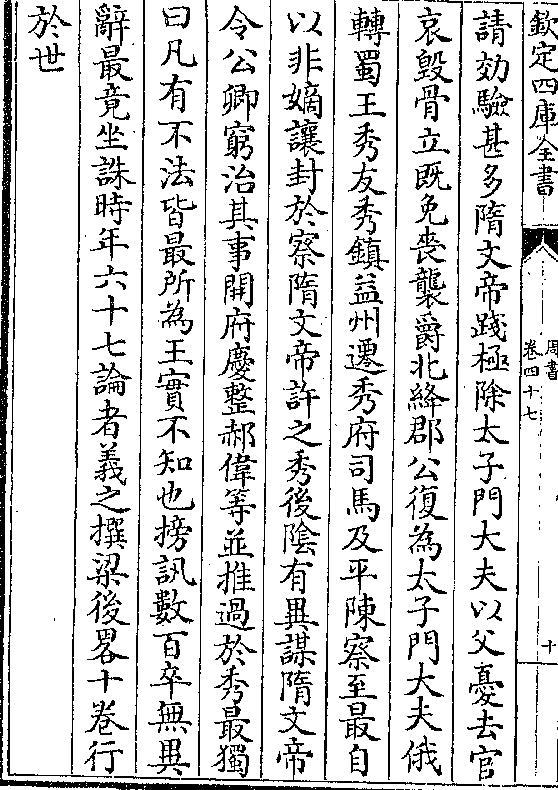 欽定四庫全書
周書
卷四十七
十
請効驗甚多隋文帝踐極除太子門大夫以父憂去官
哀毀骨立既免喪襲爵北絳郡公復為太子門大夫俄
轉蜀王秀友秀鎮益州遷秀府司馬及平陳察至最自
以非嫡讓封於察隋文帝許之秀後陰有異謀隋文帝
令公卿窮治其事開府慶整郝偉等並推過於秀最獨
曰凡有不法皆最所為王實不知也搒訊數百卒無異
辭最竟坐誅時年六十七論者義之撰梁後畧十卷行
於世